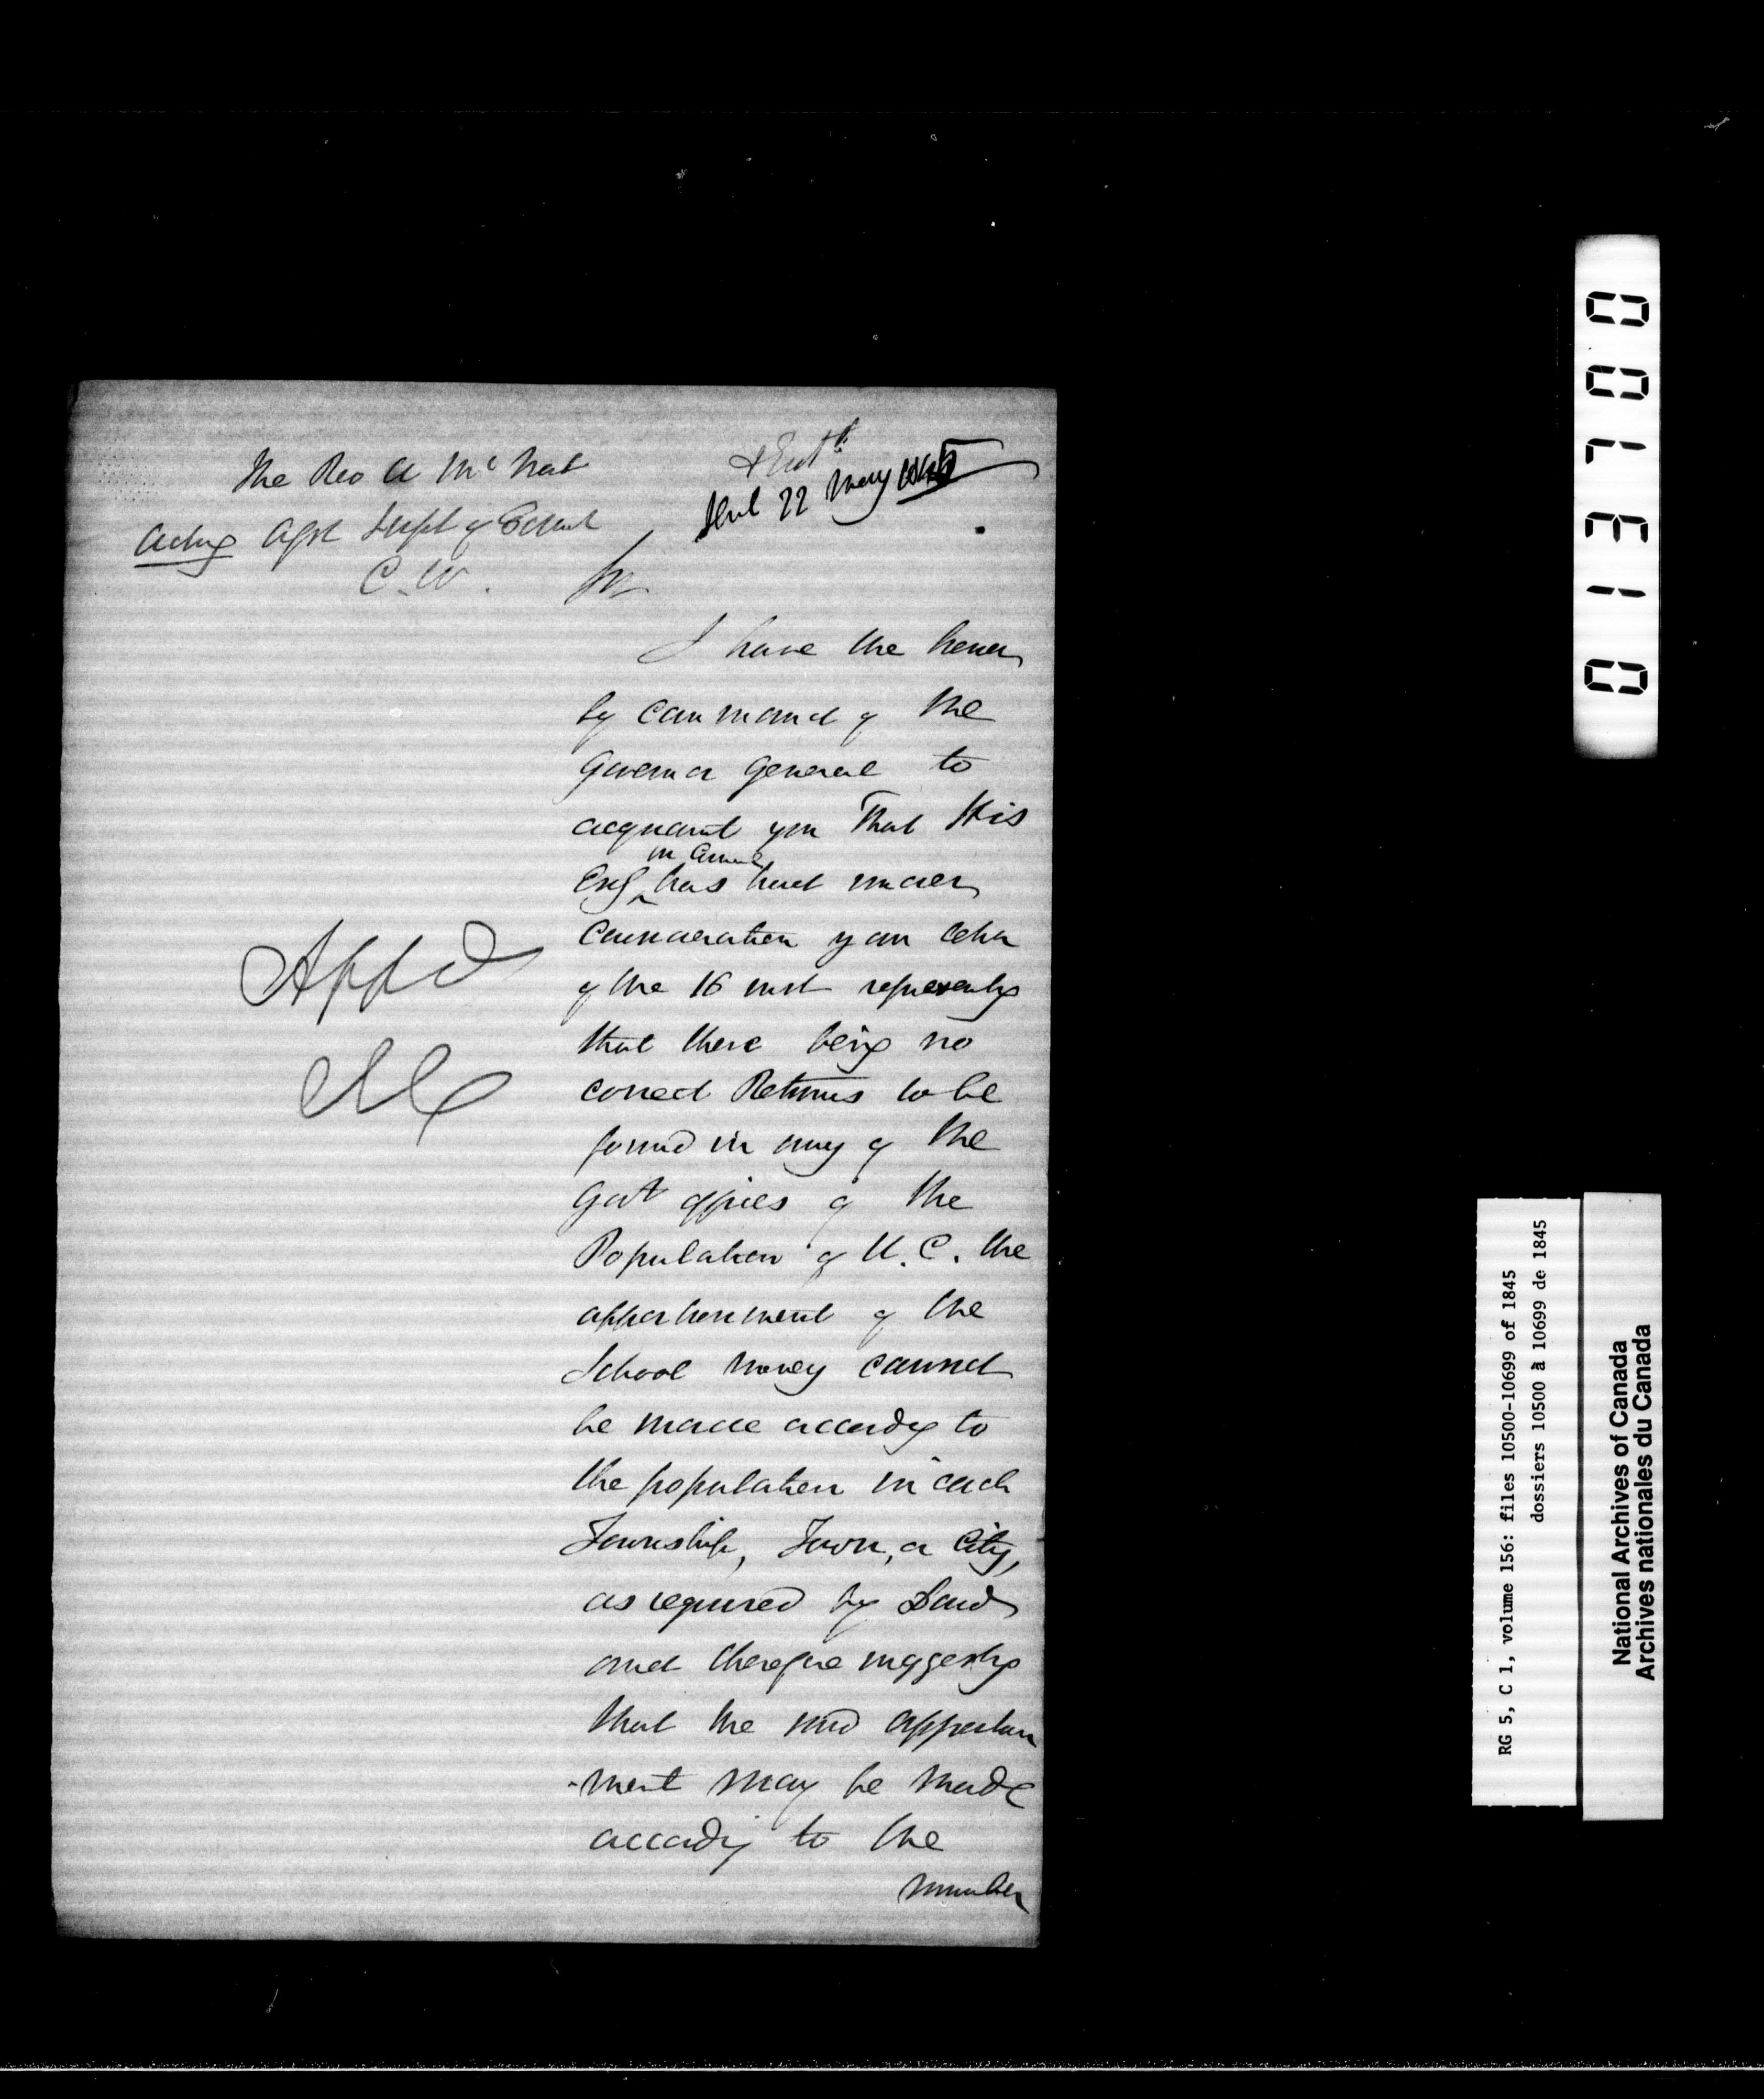 The Rev A McNab
Acting Asst Supt of Educt
C.W.
Entd
22 May 1845
Sir
I have the honor
by command of the
Governor General to
acquaint you that His
in Council
Exy has had under
Consideration your letter
of the 16 inst representg
that there being no
correct Returns to be
found in any of the
Govt offices of the
Population of U.C. the
apportionment of the
School money cannot
be made accordg to
the population in each
Township, Town, or City,
as required by Law
and therefore suggestg
that the said apportion
-ment may be made
accordg to the
number
Appd
00L310
RG 5, C 1, volume 156: files 10500-10699 of 1845
dossiers 10500 à 10699 de 1845
National Archives of Canada
Archives nationales du Canada